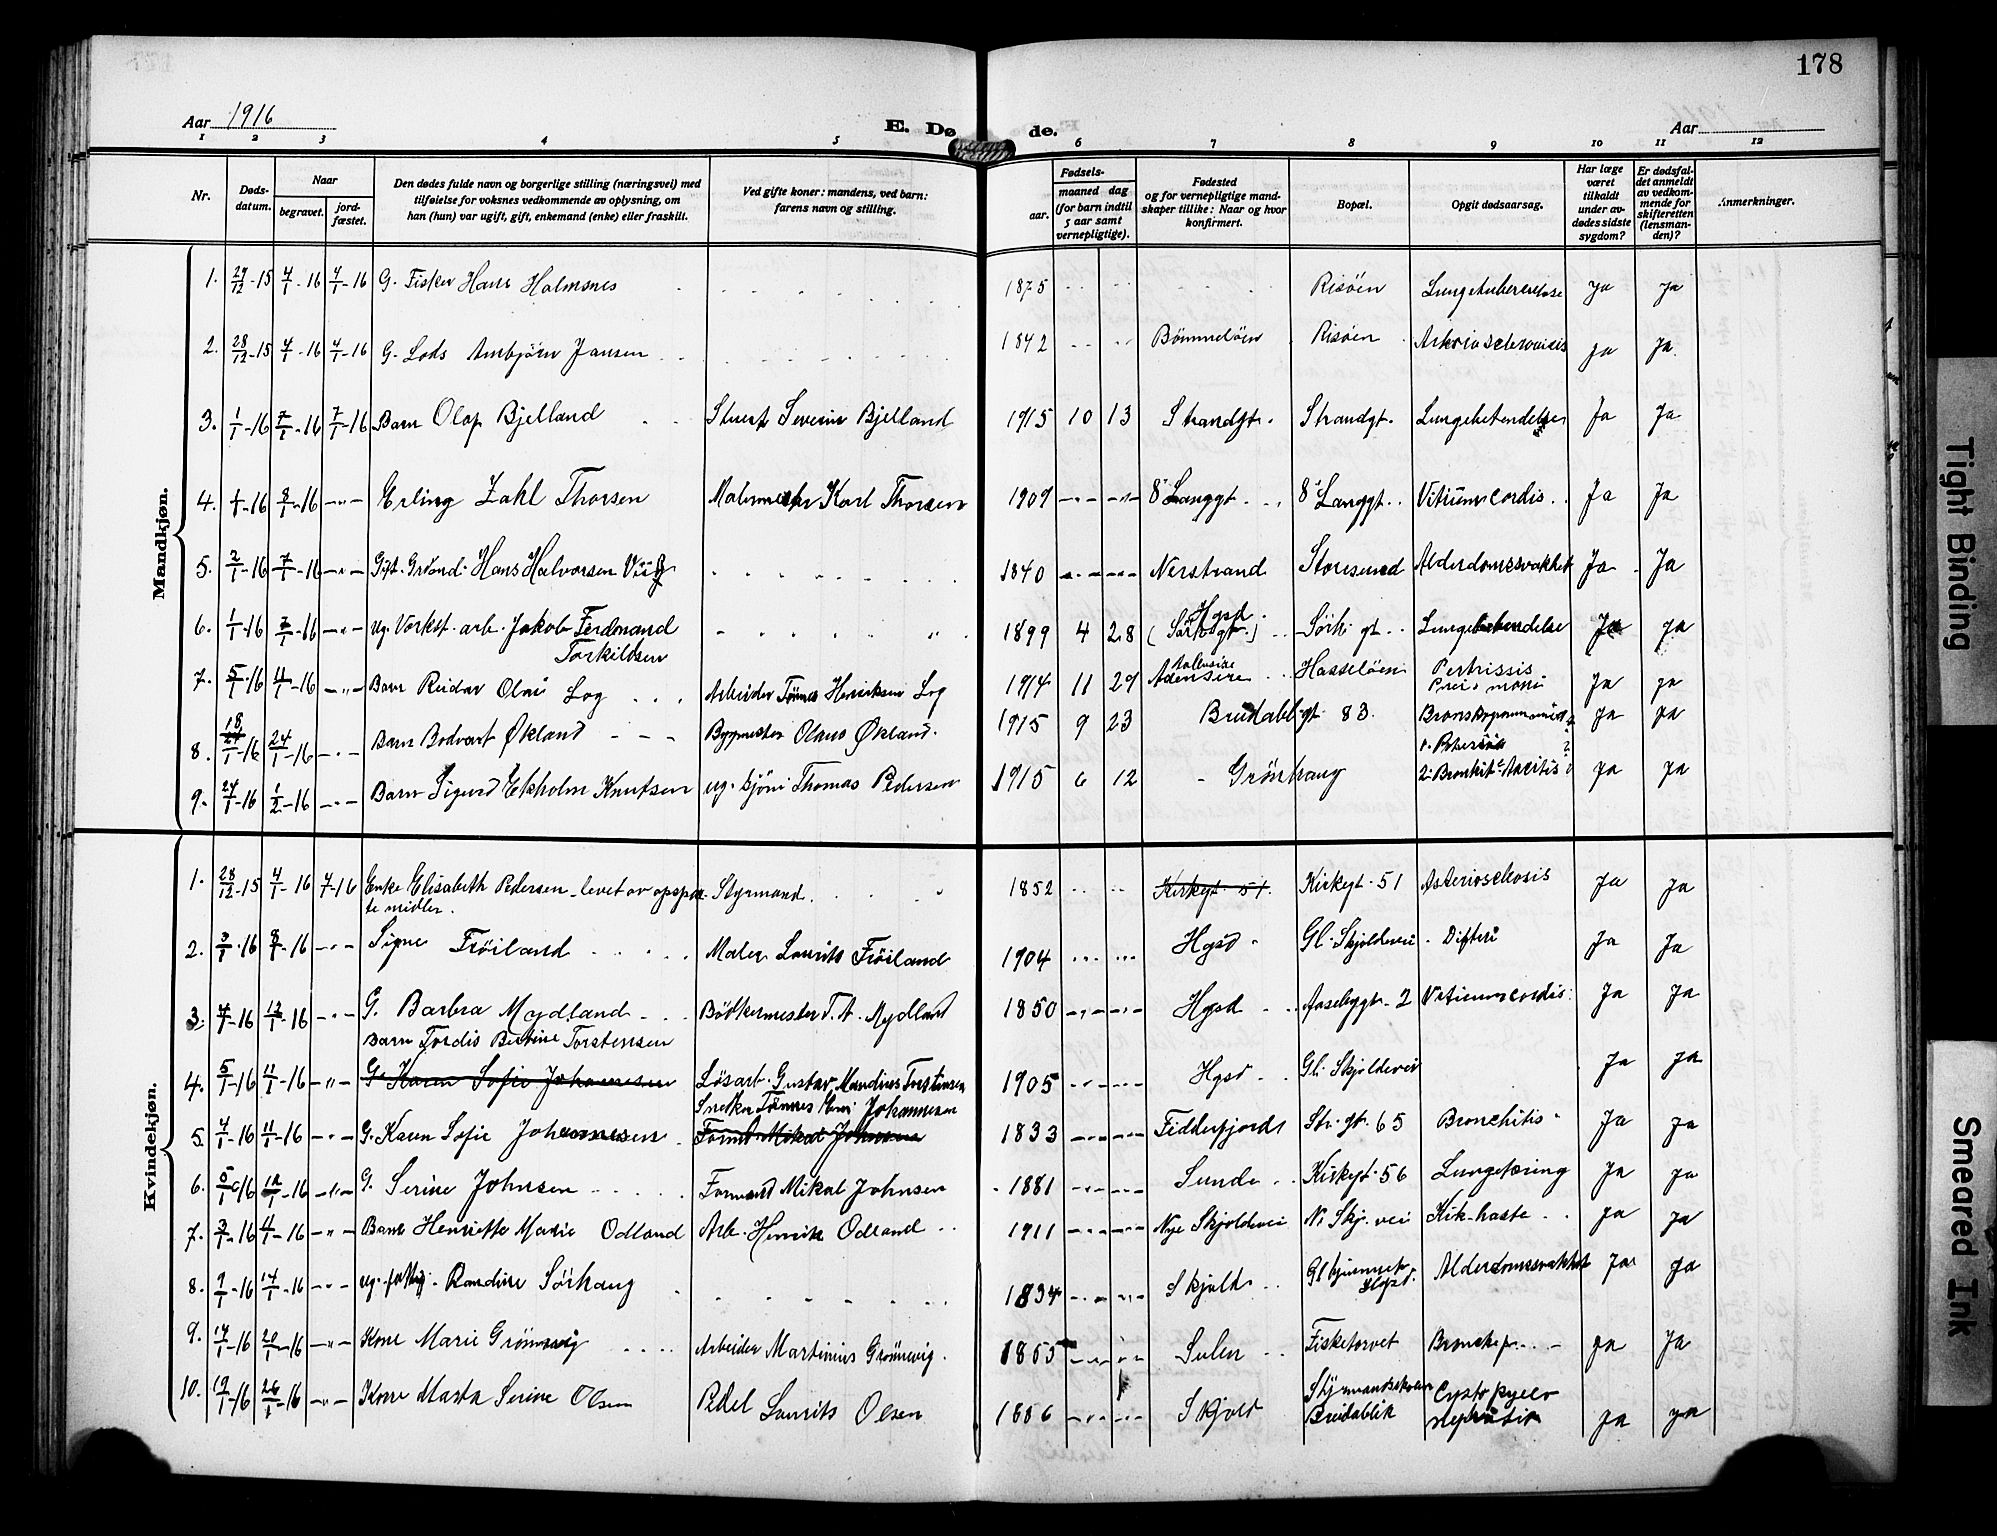 178
Aar 1916
E. Dø de.
Aar
1 2 3 4 5 6 7 8 9 10 11 12
Nr.
Døds-
datum.
Naar
begravet.
jord-
fæstet.
Den dødes fulde navn og borgerlige stilling (næringsvei) med
tilføielse for voksnes vedkommende av oplysning, om
han (hun) var ugift, gift, enkemand (enke) eller fraskilt.
Ved gifte koner: mandens, ved barn:
farens navn og stilling.
Fødsels-
aar.
maaned dag
(for barn indtil
5 aar samt
vernepligtige).
Fødested
og for vernepligtige mand-
skaper tillike: Naar og hvor
konfirmert.
Bopæl.
Opgit dødsaarsag.
Har læge
været
tilkaldt
under av-
dødes sidste
sygdom?
Er dødsfal-
det anmeldt
av vedkom-
mende for
skifteretten
(lensman-
den)?
Anmerkninger.
Mandkjøn.
1. 29/12-15 4/1-16 4/1-16 G. Fisker Hans Holmsnes 1875 Risöen Lungetuberculose Ja Ja
2. 28/12-15 4/1-16 4/1-16 G. Lods Ambjörn Jansen 1842 Bömmelöen Risöen Ja Ja
3. 1/1-16 7/1-16 7/1-16 Barn Olaf Bjelland Stuert Severin Bjelland 1915 10 13 Strandgt. Strandgt. Lungebetendelse Ja Ja
4. 8/1-16 -"- Erling Zahl Thorsen Malermester Karl Thorsen 1909 -"- -"- 8' Langgt. 8' Langgt. Vitium cordis Ja Ja
5. 2/1-16 7/1-16 -"- Gift. Hans Halvorsen 1840 -"- -"- Nerstrand Storesund Alderdomssvakhet Ja Ja
6. 1/1-16 7/1-16 -"- ug. Verkst. arb. Jakob Ferdinand
Torkildsen 1899 4 28 Hgsd.
(Sörh. gt.) Sörh. gt. Lungebetendelse Ja Ja
7. 5/1-16 4/1-16 -"- Barn Reidar Olai Log Arbeider Tönnes Henriksen Log 1914 11 29 Hasselöen Ja Ja
8. 18/1-16 24/1-16 -"- Barn Bodvart Økland Bygmester Olaus Økland. 1915 9 23 Breidablikgt. 83. Ja Ja
9. 24/1-16 1/2-16 -"- Barn Sigurd Ekholm Knutsen ug. sjöm. Thomas Pedersen 1915 6 12 Grönhaug Ja Ja
Kvindekjøn.
1. 28/12-15 4/1-16 7-16 Enke Elisabeth Pedersen - levet av opspar-
te midler. Styrmand 1852 Kirkegt. 51. Kirkegt. 51 Ja Ja
2. 3/1-16 8/1-16 -"- Signe Fröiland Maler Laurits Fröiland 1904 Hgsd. Gl. Skjoldevei Difteri Ja Ja
3. 4/1-16 12/1-16 -"- G. Barbra Mydland Bödkermester T. A. Mydland 1850 -"- -"- Hgsd Aasebygt. 2 Vitium cordis. Ja Ja
Barn Tordis Bertine Torstensen
4. 5/1-16 11/1-16 -"- G. Karen Sofie Johannesen Lösarb. Gustav Mandius Torstensen 1905 Hgsd Gl. Skjoldevei Ja Ja
Snedker Tönnes Johannesen
5. 4/1-16 11/1-16 -"- G. Karen Sofie Johannesen Formd. Mikal Johnsen 1833 -"- -"- Feddefjord Str. gt. 65 Bronchitis Ja Ja
6. 5/1-16 12/1-16 -"- G. Serine Johnsen Formand Mikal Johnsen 1881 -"- -"- Sunde Kirkegt. 56 Lungetæring Ja Ja
7. 3/1-16 4/1-16 -"- Barn Henriette Marie Odland Arb. Henrik Odland 1911 -"- -"- Nye Skjoldevei N. Skj. vei Kik-hoste Ja Ja
8. 9/1-16 14/1-16 -"- ug. fattig. Randine Sörhaug 1834 -"- -"- Skjold Glhjemmet
Hgsd. Alderdomssvakhet Ja Ja
9. 17/1-16 20/1-16 -"- Kone Marie Grönnevig Arbeider Martinius Grönnevig. 1855 -"- Sulen Fisketorvet Bronchop. Ja Ja
10. 19/1-16 26/1-16 -"- Kone Marta Serine Olsen Pedel Laurits Olsen 1886 -"- -"- Skjold Styrmandsskolen
Breidablik Cysto pyelo
Ja Ja
Tight Binding
Smeared Ink